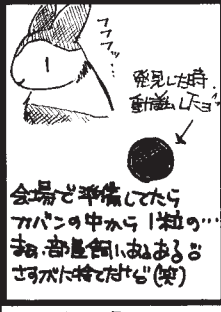 フフフッ…
発見した時、
動揺したョ
会場で準備してたら
カバンの中から1粒の…
まぁ、部屋飼いあるある♡
さすがに捨てたけど(笑)